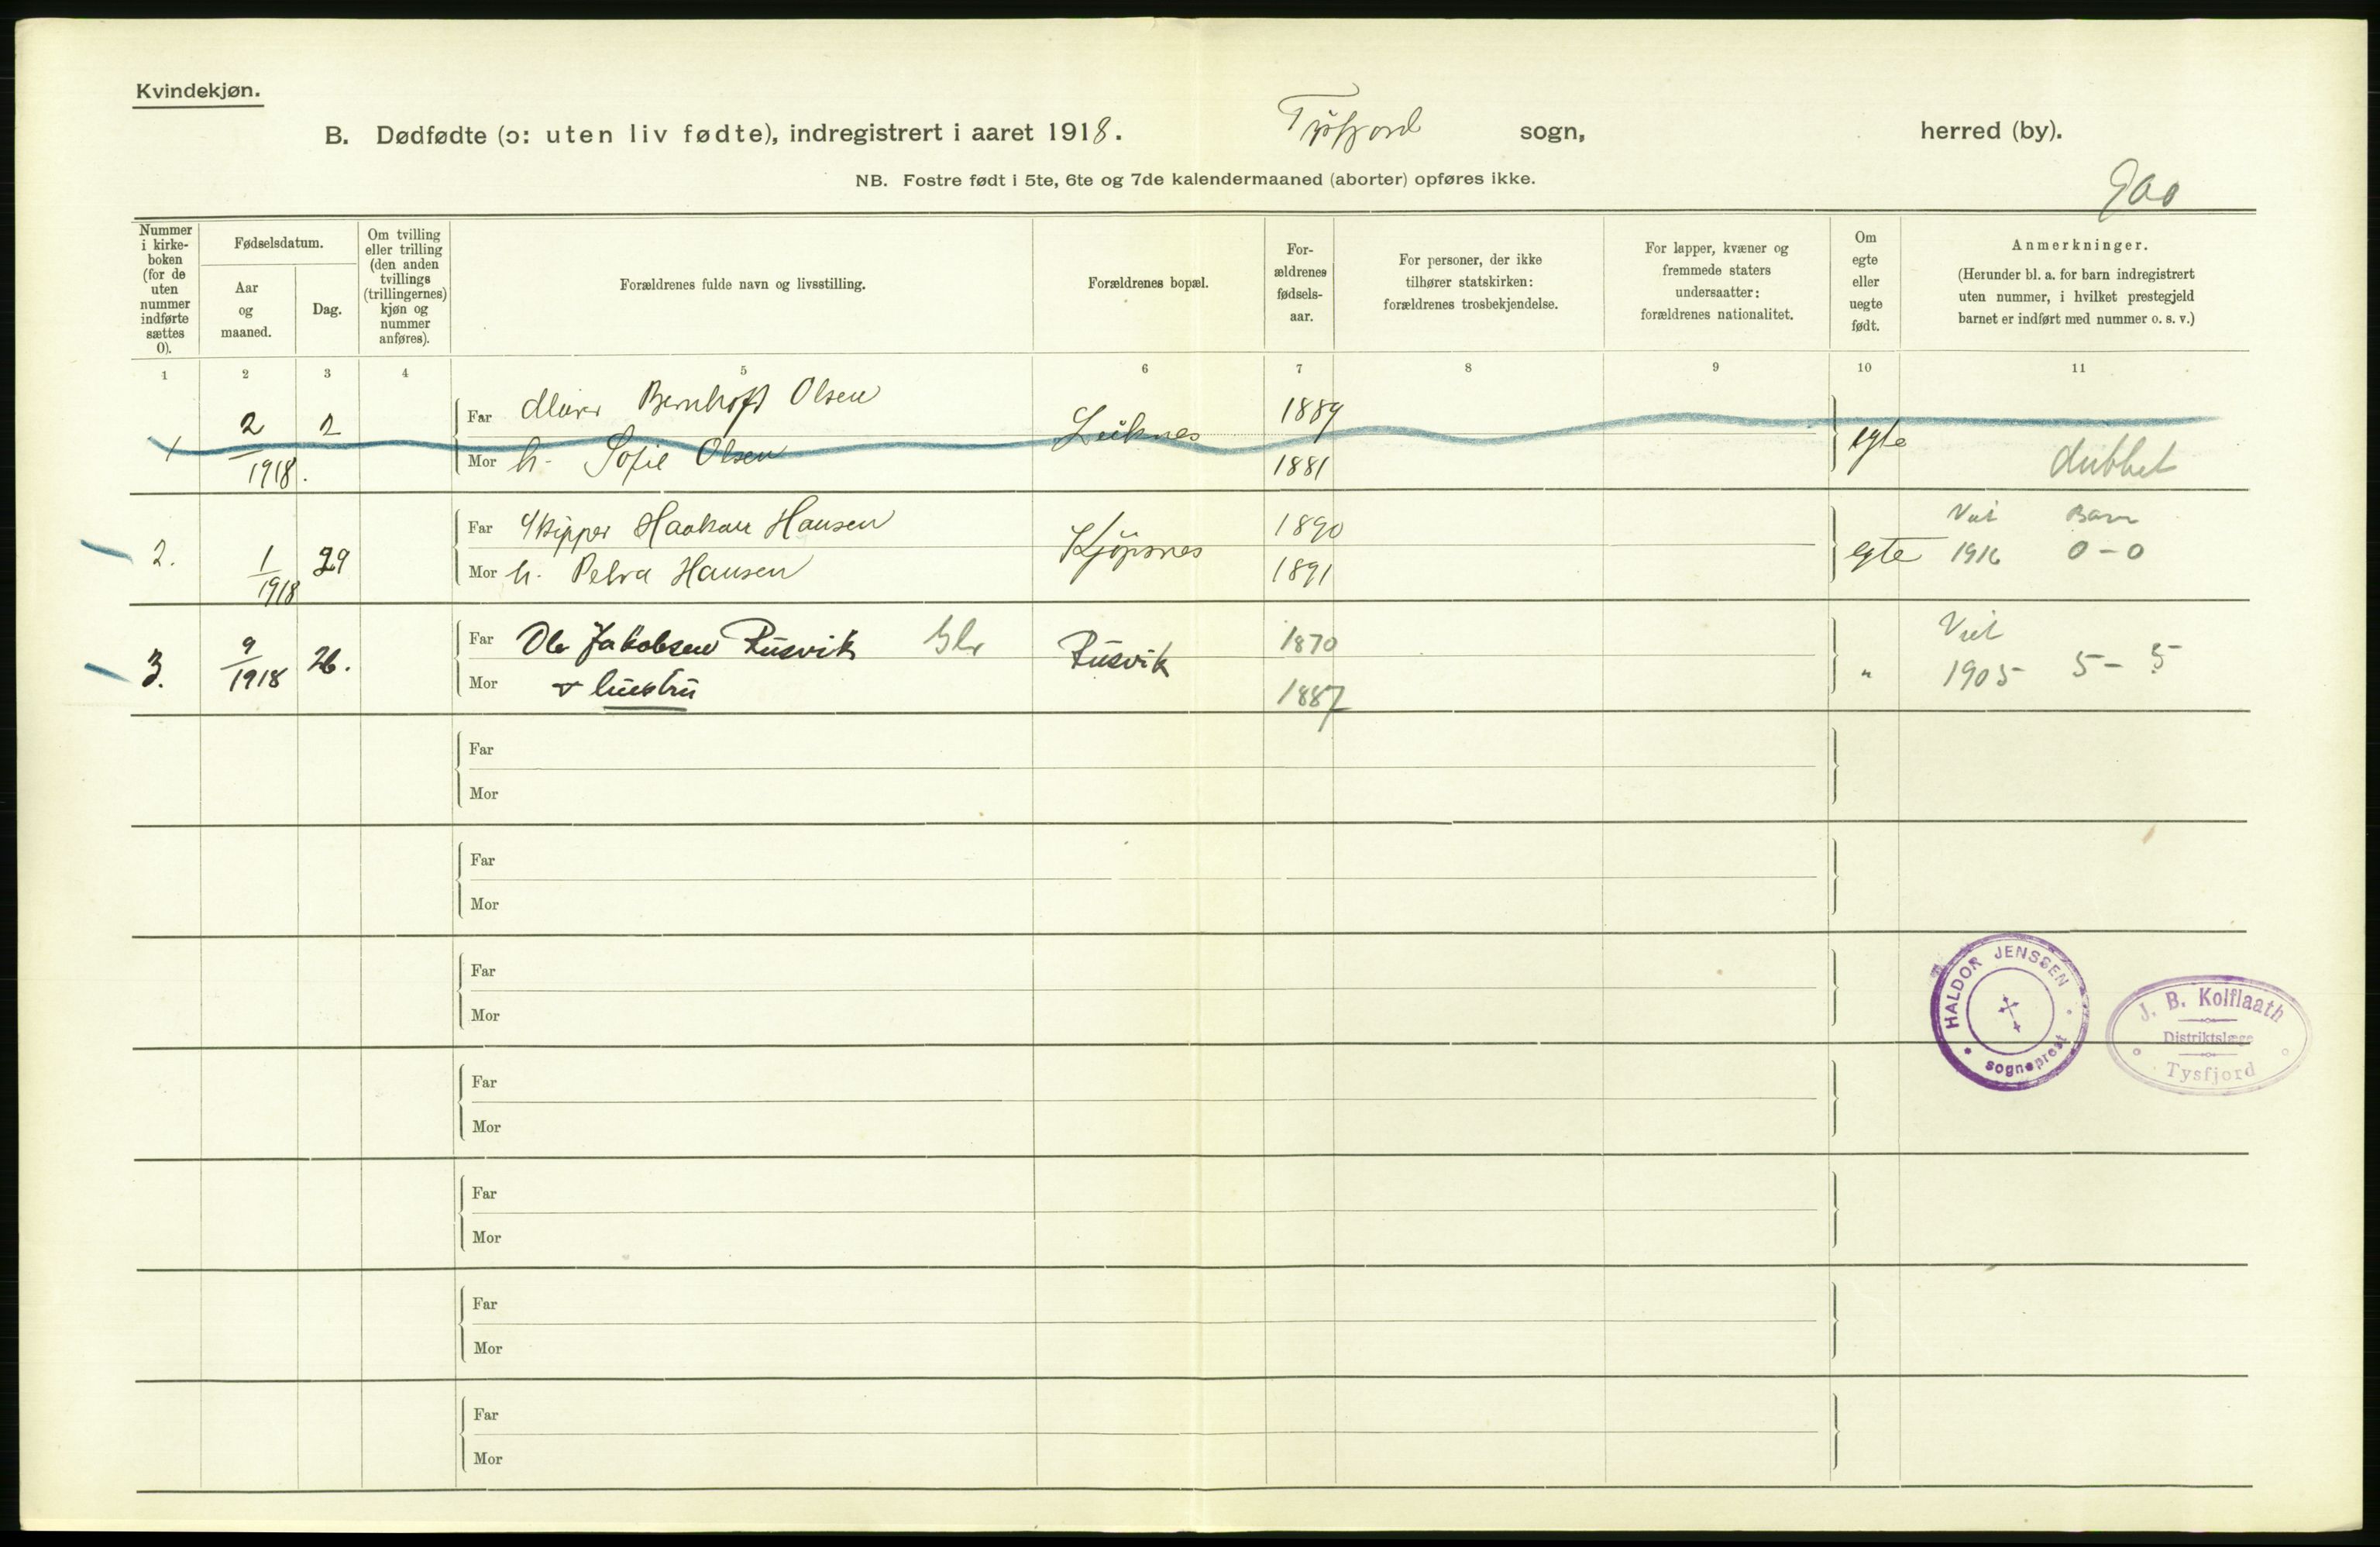 Kvindekjøn.
B. Dødfødte (ɔ: uten liv fødte), indregistrert i aaret 1918. Tysfjord sogn, herred (by).
NB. Fostre født i 5te, 6te og 7de kalendermaaned (aborter) opføres ikke.
Nummer i kirke-boken (for de uten nummer indførte sættes 0).
Fødselsdatum.
Aar og maaned.
Dag.
Om tvilling eller trilling (den anden tvillings (trillingernes) kjøn og nummer anføres).
Forældrenes fulde navn og livsstilling.
Forældrenes bopæl.
For-ældrenes fødsels-aar.
For personer, der ikke tilhører statskirken: forældrenes trosbekjendelse.
For lapper, kvæner og fremmede staters undersaatter: forældrenes nationalitet.
Om egte eller uegte født.
Anmerkninger.
(Herunder bl. a. for barn indregistrert uten nummer, i hvilket prestegjeld barnet er indført med nummer o. s. v.)
1 2 3 4 5 6 7 8 9 10 11
1 2/1918. 2 Far Bernhoft Olsen 1889
Mor h. Sofie Olsen Leiknes 1881 egte dubbet
2. 1/1918 29 Far Skipper Haakon Hansen Kjöpsnes 1890 egte Viet Barn
Mor h. Petra Hansen 1891 1916 0-0
3. 9/1918 26. Far Ole Jakobsen Rusvik Rusvik 1870 " Viet
Mor + hustru 1887 1905 5-5
Far
Mor
Far
Mor
Far
Mor
HALDOR JENSSEN
sogneprest
J. B. Kolflaath
Distriktslæge
Tysfjord
Far
Mor
Far
Mor
Far
Mor
Far
Mor